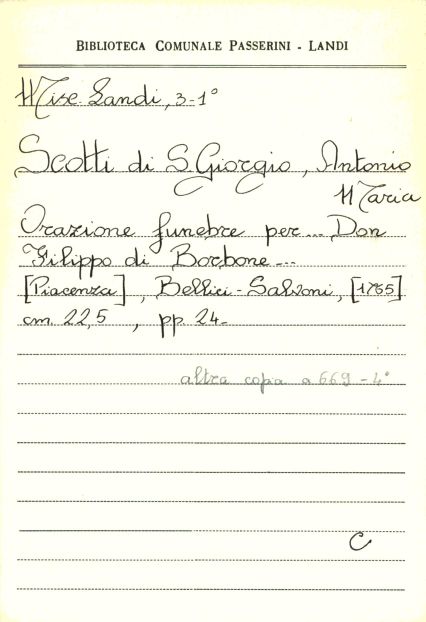 BIBLIOTECA COMUNALE PASSERINI - LANDI
Misc. Landi, 3-1°
Scotti di S. Giorgio, Antonio
Maria
Orazione funebre per... Don
Filippo di Borbone...
[Piacenza], Bellici-Salvoni, [1765]
cm. 22,5, pp. 24-
altra copia a 669-4°
C